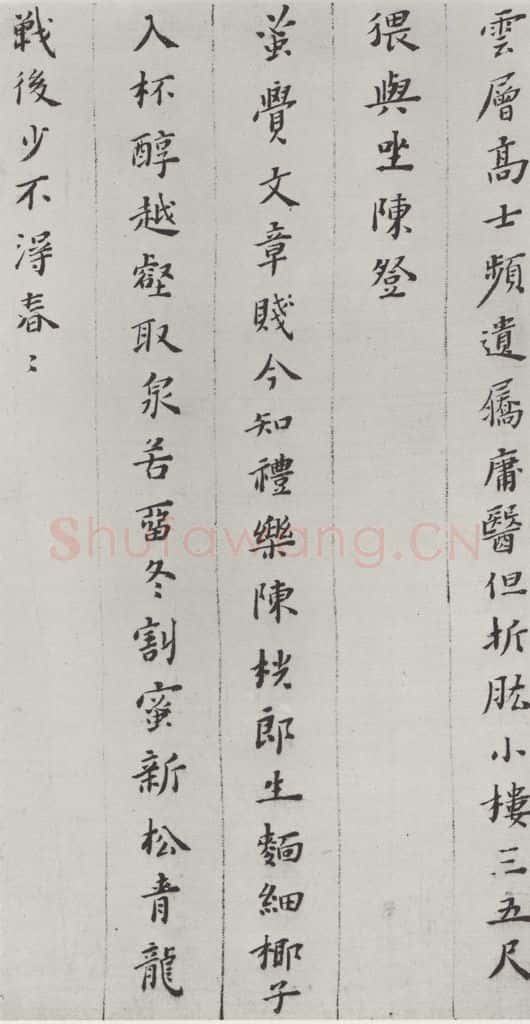 雲層高士頻遺屩庸醫但折肱小樓三五尺
猥與坐陳登
蚤覺文章賤今知禮樂陳桄郎生麵細椰子
入杯醇越壑取泉若畱冬割蜜新松青龍
戰後少不得春〻
Shufawang.CN